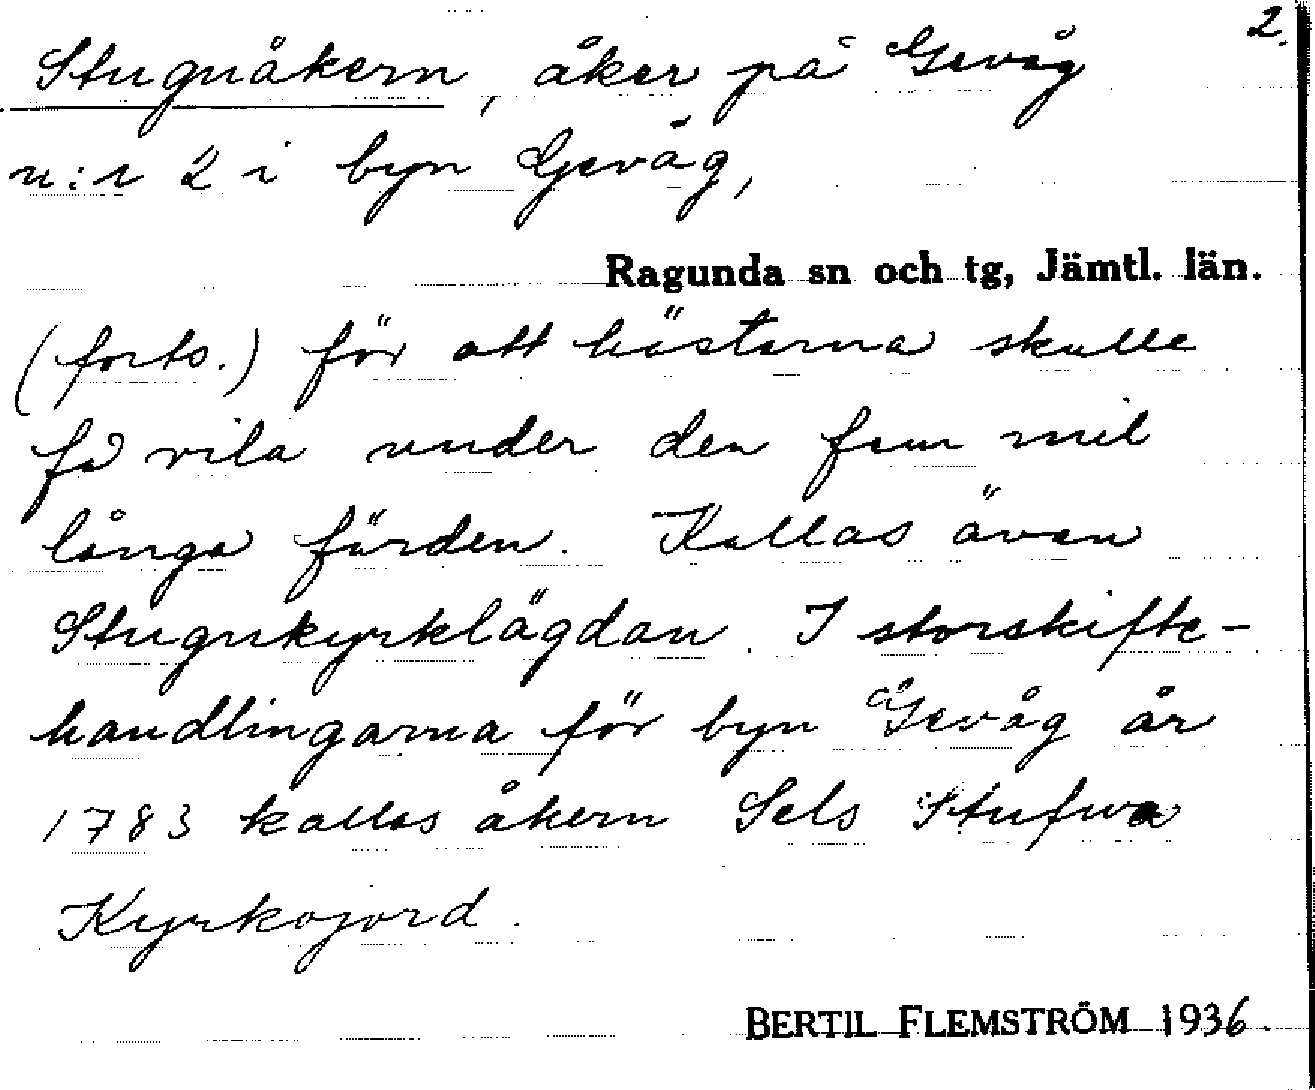 2.
Stugnåkern, åker på Gevåg
n:r 2 i byn Gevåg,
Ragunda sn och tg, Jämtl. län.
(forts.) för att hästarna skulle
få vila under den fem mil
långa färden. Kallas även
Stugnkyrklägdan. I storskifte-
handlingarna för byn Gevåg år
1783 kallas åkern Sels Stufwa
Kyrkojord.
BERTIL FLEMSTRÖM 1936.